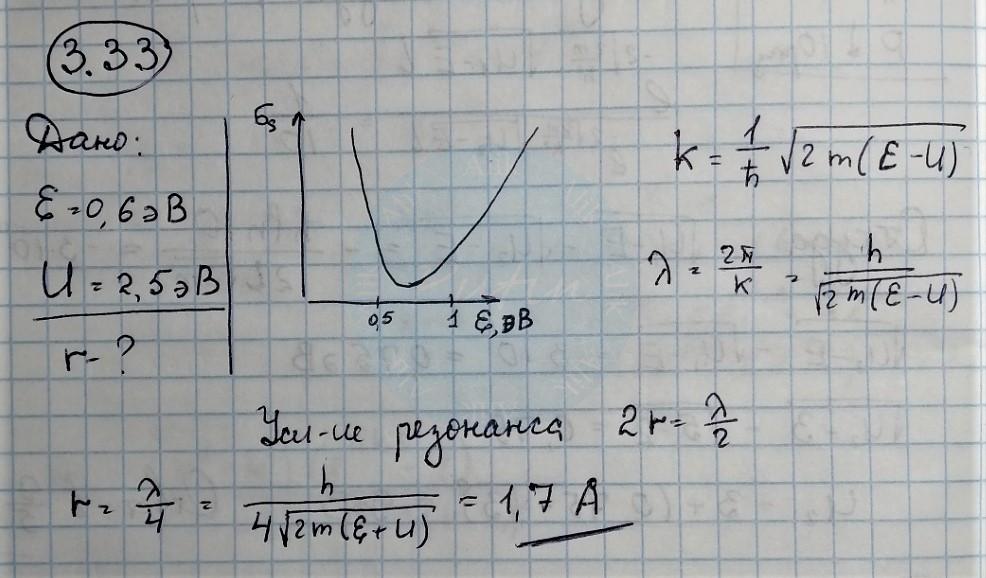 3.33
Дано:
ε = 0,6 эВ
U = 2,5 эВ
r - ?
σs
0,5 1 ε, эВ
k = 1/ħ √2m(ε-U)
λ = 2π/k = h/√2m(ε-U)
Усл-ие резонанса 2r = λ/2
r = λ/4 = h/4√2m(ε+U) = 1,7 А